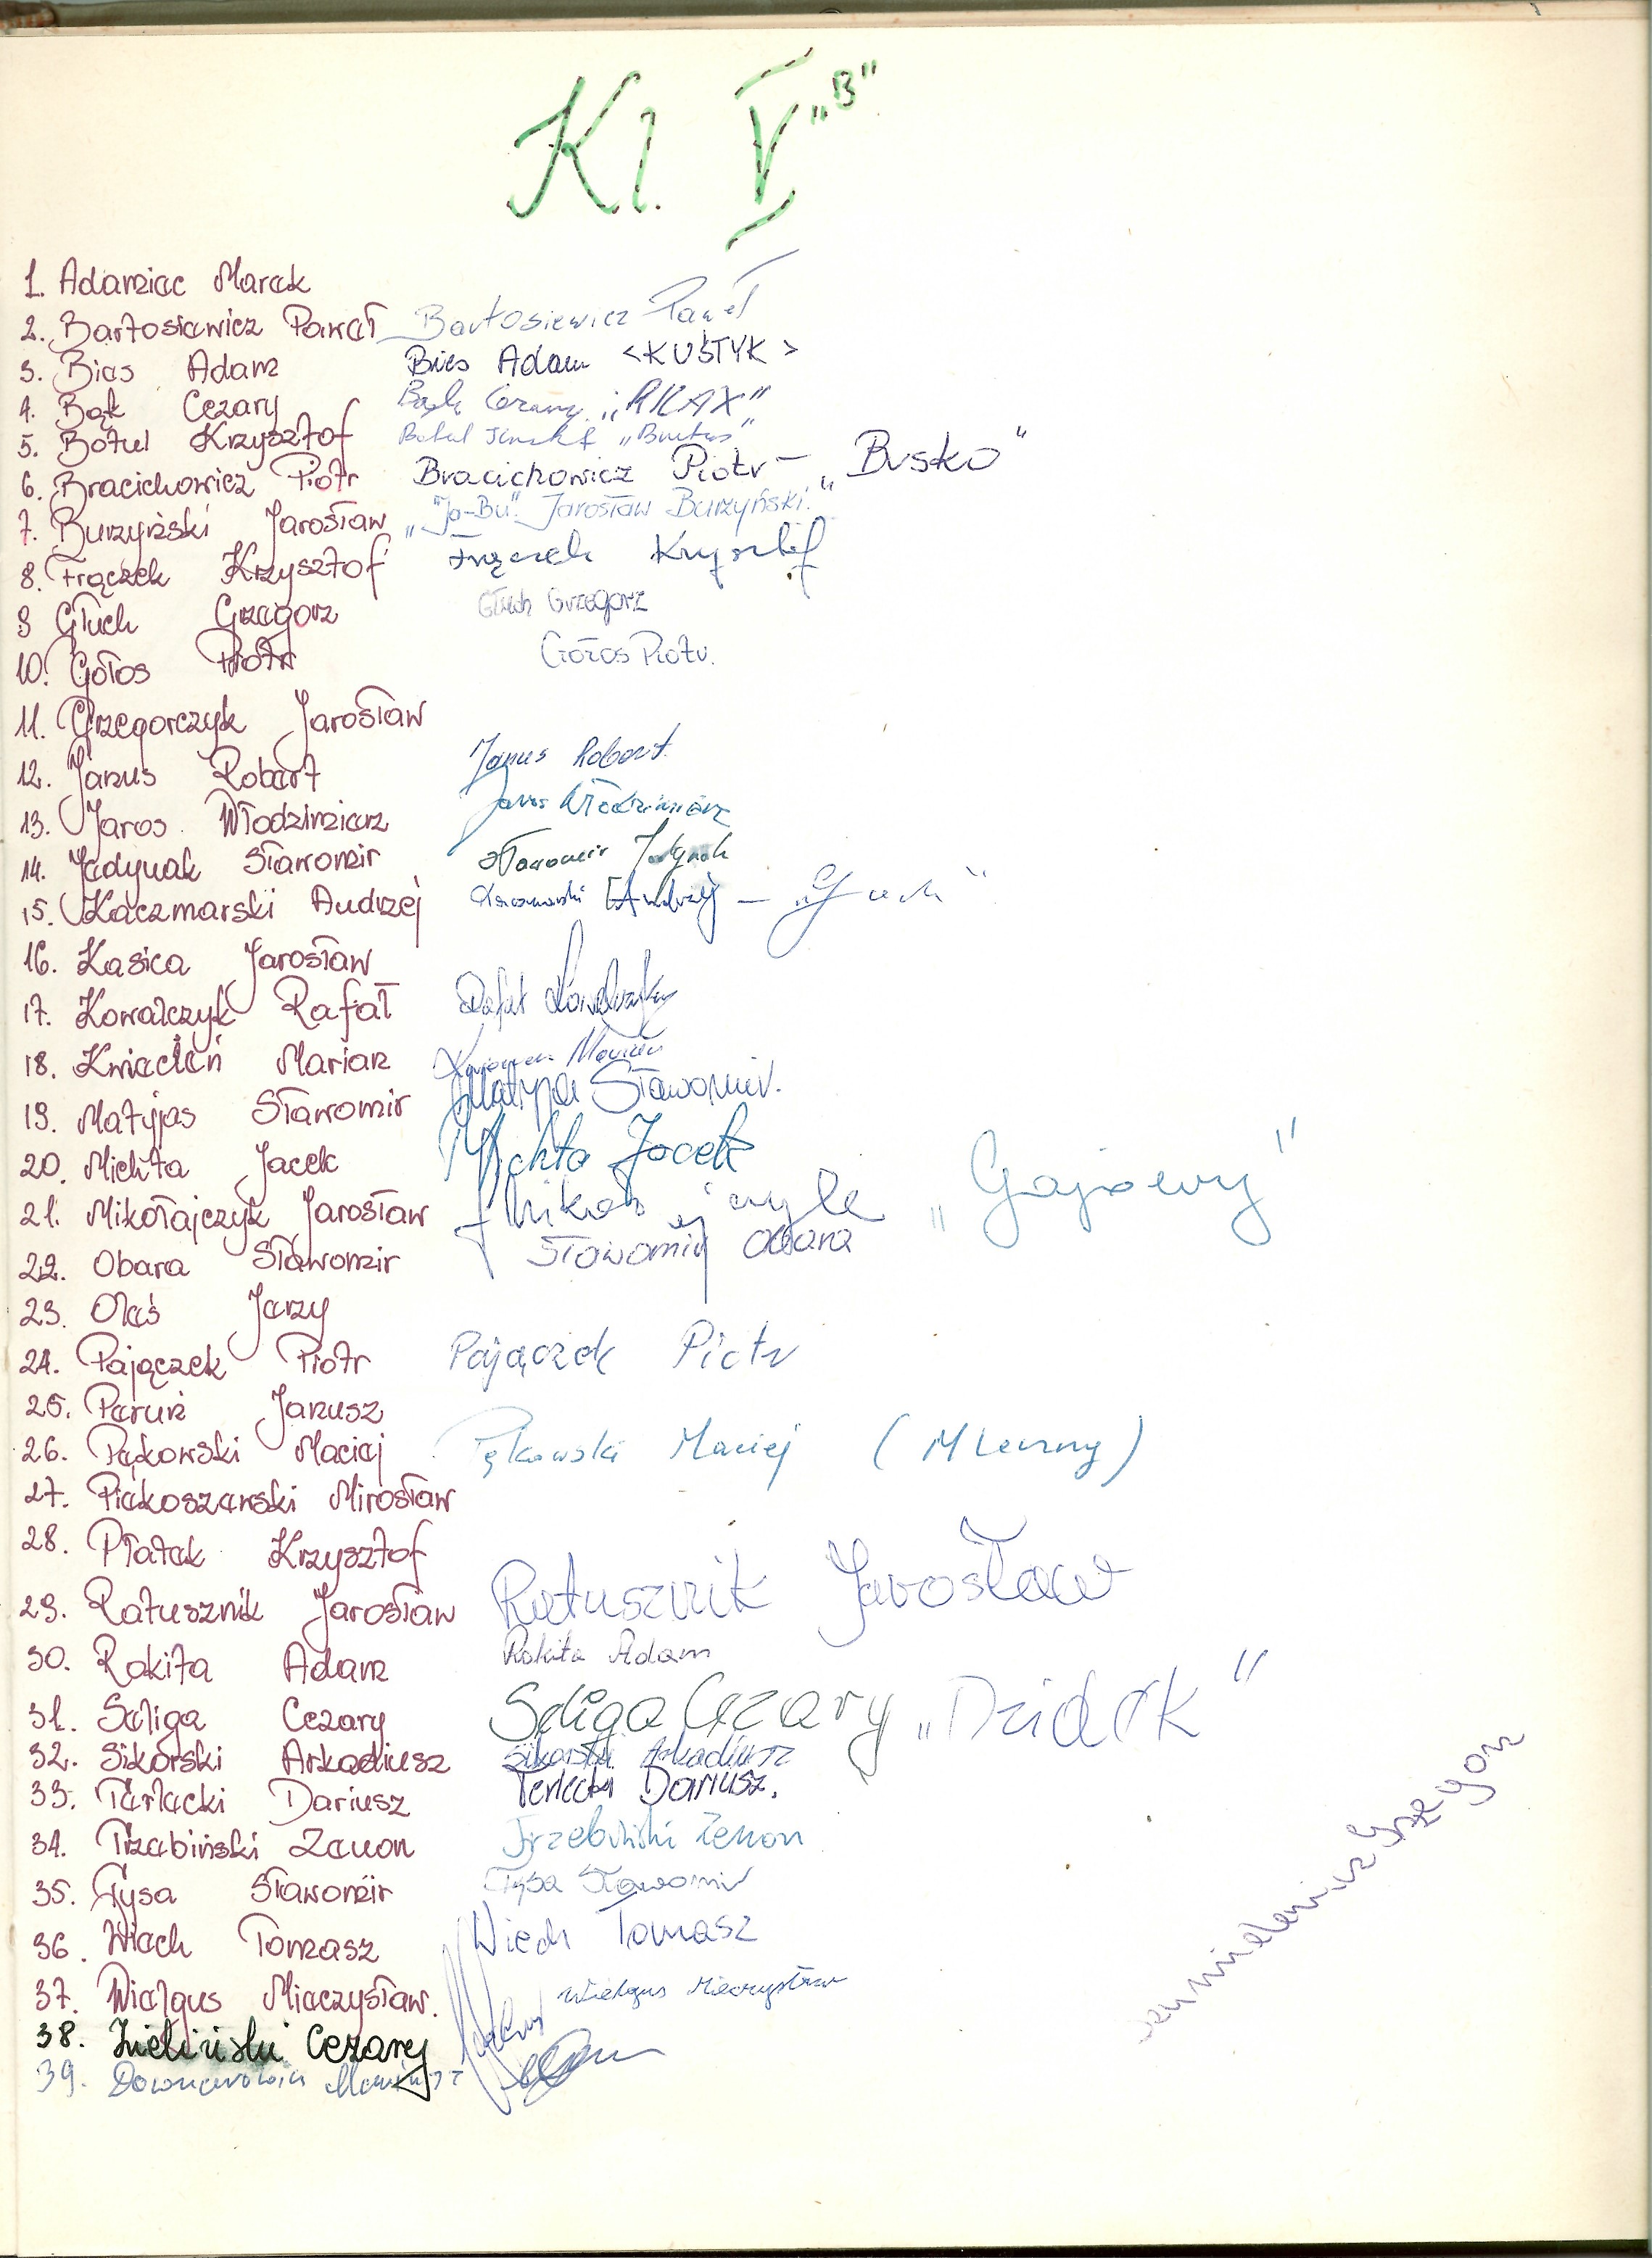 Kl. V "B"
1. Adamiec Marek
2. Bartosiewicz Paweł Bartosiewicz Paweł
3. Bies Adam Bies Adam <KUŚTYK>
4. Bąk Cezary Bąk Cezary
5. Botul Krzysztof Botul
6. Bracichowicz Piotr Bracichowicz Piotr – „Busko"
7. Burzyński Jarosław „Ja-Bu". Jarosław Burzyński.
8. Frączek Krzysztof Frączek Krzysztof
9 Głuch Grzegorz Głuch Grzegorz
10. Gołos Piotr Gołos Piotr.
11. Grzegorczyk Jarosław
12. Janus Robert Janus Robert
13. Jaros Włodzimierz Jaros Włodzimierz
14. Jedynak Sławomir Sławomir Jedynak
15. Kaczmarski Andrzej Kaczmarski Andrzej –
16. Kasica Jarosław
17. Kowalczyk Rafał Rafał Kowalczyk
18. Kwiecień Marian Kwiecień Marian
19. Matyjas Sławomir Matyjas Sławomir.
20. Michta Jacek Michta Jacek
21. Mikołajczyk Jarosław „Gajowy"
22. Obara Sławomir Sławomir Obara
23. Oleś Jerzy
24. Pajączek Piotr Pajączek Piotr
25. Janusz
26. Pękowski Maciej Pękowski Maciej (Mleczny)
27. Piekoszewski Mirosław
28. Płatek Krzysztof
29. Ratusznik Jarosław Ratusznik Jarosław
30. Rokita Adam Rokita Adam
31. Seliga Cezary Seliga Cezary „Dzidek"
32. Sikorski Arkadiusz Sikorski Arkadiusz
33. Terlecki Dariusz Terlecki Dariusz.
34. Trzebiński Zenon Trzebiński Zenon
35. Tysa Sławomir Tysa Sławomir
36. Wiech Tomasz Wiech Tomasz
37. Wielgus Mieczysław. Wielgus Mieczysław
38. Zieliński Cezary
39.
Grzegorz